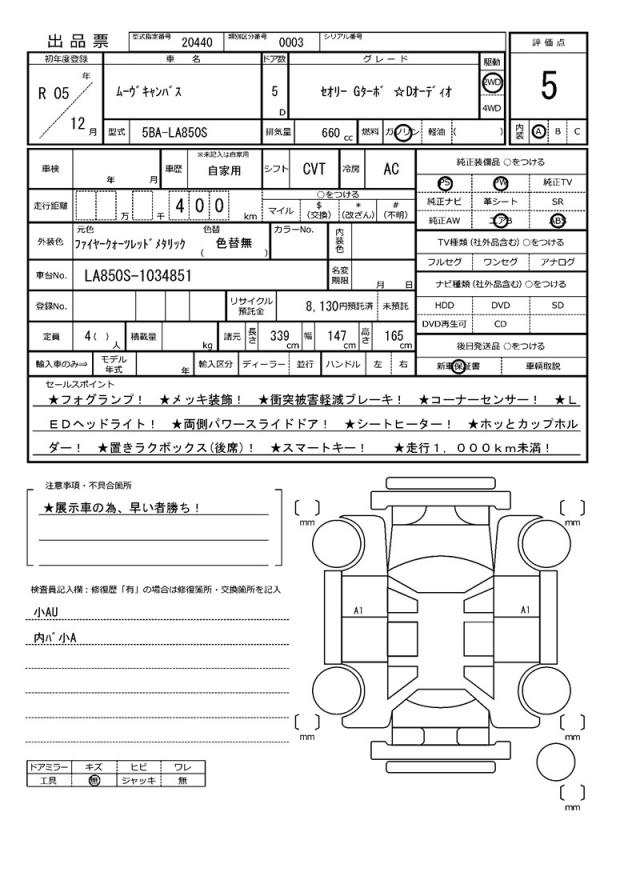 出品票 型式指定番号 20440 類別区分番号 0003 シリアル番号
評価点
5
内装 A B C
初年度登録 車名 ドア数 グレード 駆動
R 05 年 12 月
ムーヴキャンバス 5 D セオリー Gターボ ☆Dオーディオ 2WD 4WD
型式 5BA-LA850S 排気量 660 cc 燃料 ガソリン 軽油 ( )
車検 年 月 車歴 ※未記入は自家用 自家用 シフト CVT 冷房 AC
走行距離 万 千 4 0 0 km
○をつける
マイル $(交換) *(改ざん) #(不明)
外装色 元色 ファイヤークォーツレッドメタリック 色替 色替無 ( ) カラーNo. 内装色
車台No. LA850S-1034851 名変期限 月 日
登録No. リサイクル預託金 8,130円預託済 未預託
定員 4( ) 人 積載量 kg 諸元 長さ 339 cm 幅 147 cm 高さ 165 cm
輸入車のみ⇒ モデル年式 年 輸入区分 ディーラー 並行 ハンドル 左 右
純正装備品 ○をつける
PS PW 純正TV
純正ナビ 革シート SR
純正AW エアB ABS
TV種類(社外品含む)○をつける
フルセグ ワンセグ アナログ
ナビ種類(社外品含む)○をつける
HDD DVD SD
DVD再生可 CD
後日発送品 ○をつける
新車保証書 車輌取説
セールスポイント
★フォグランプ! ★メッキ装飾! ★衝突被害軽減ブレーキ! ★コーナーセンサー! ★L
EDヘッドライト! ★両側パワースライドドア! ★シートヒーター! ★ホッとカップホル
ダー! ★置きラクボックス(後席)! ★スマートキー! ★走行1,000km未満!
注意事項・不具合箇所
★展示車の為、早い者勝ち!
検査員記入欄:修復歴「有」の場合は修復箇所・交換箇所を記入
小AU
内バ小A
ドアミラー キズ ヒビ ワレ
工具 無 ジャッキ 無
〔 〕mm 〔 〕mm
A1 A1
〔 〕mm 〔 〕mm
〔 〕mm